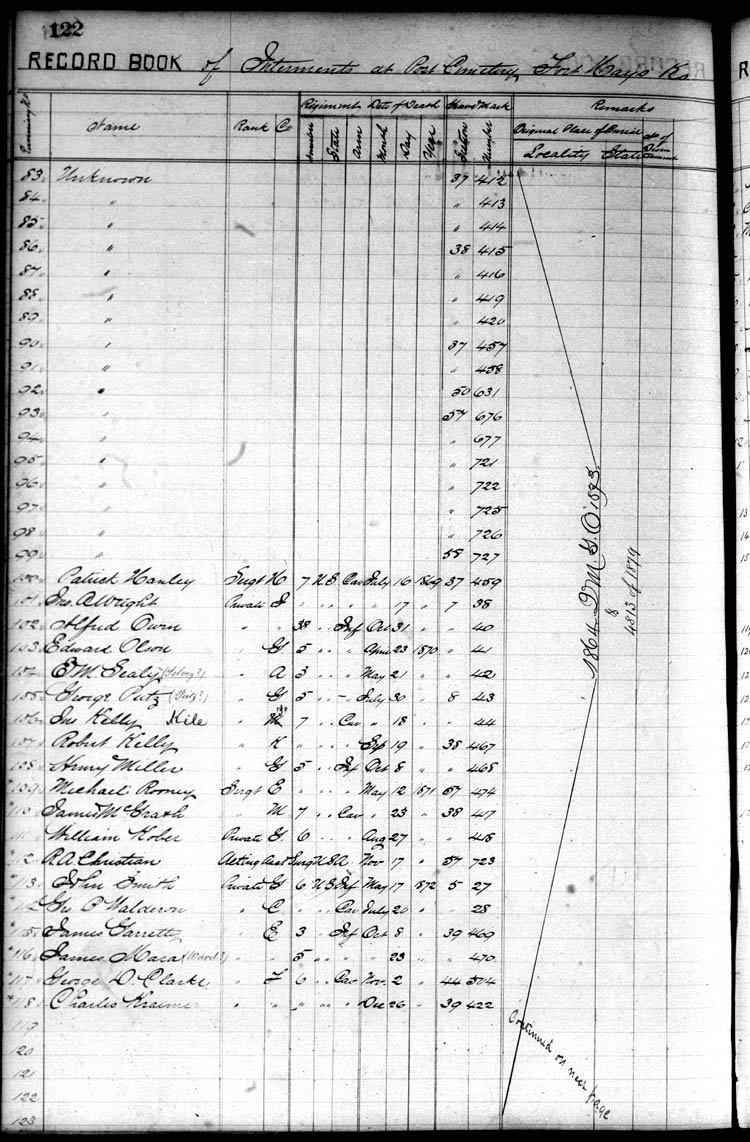 122
RECORD BOOK of Interments at Post Cemetery, Fort Hays Ks
Regiment Date of Death Grave Mark Remarks
Name Rank Co Number State Arm Month Day Year Section Number Original Place of Burial
Locality State
83 Unknown 37 412
84 " " 413
85 " " 414
86 " 38 415
87 " " 416
88 " " 419
89 " " 420
90 " 37 457
91 " " 458
92 " 50 631
93 " 57 676
94 " " 677
95 " " 721
96 " " 722
97 " " 725
98 " " 726
99 " 58 727
100 Patrick Hanley Sergt H 7 U S Cav July 16 1869 37 459
101 Jno. A Wright Private I " " " " " 17 " 7 38
102 Alfred Owen " " 38 " " Inf Oct 31 " " 40
103 Edward Olson " G 5 " " " April 23 1870 " 41
104 E. M. Sealy (Selvey?) " A 3 " " " May 21 " " 42
105 George Putz (Deitz?) " G 5 " " July 30 " 8 43
106 Jno Kelly Kile " M 7 " " Cav " 18 " " 44
107 Robert Kelly " K " " " " Sep 19 " 38 467
108 Henry Miller " G 5 " " Inf Oct 8 " " 468
109 Michael Rooney Sergt E " " " " May 12 1871 37 474
110 James McGrath " M 7 " " Cav " 23 " 38 417
111 William Kober Private G 6 " " " Aug 27 " " 418
112 R. A. Christian Acting Asst Surg U S A Nov 17 " 57 723
113 John Smith Private G 6 U S Inf May 17 1872 5 27
114 Geo C Walderon " C " " " Cav July 20 " " 28
115 James Garrett " E 3 " " Inf Oct 8 " 39 469
116 James Mara (Ward?) " " 5 " " " " 23 " " 470
117 George D. Clarke " L 6 " " Cav Nov. 2 " 44 504
118 Charles Kraemer " " " " " " Dec 26 " 39 422
119
120
121
122
123
1864 Q M G O 1893
&
4813 of 1879
Continued on next page